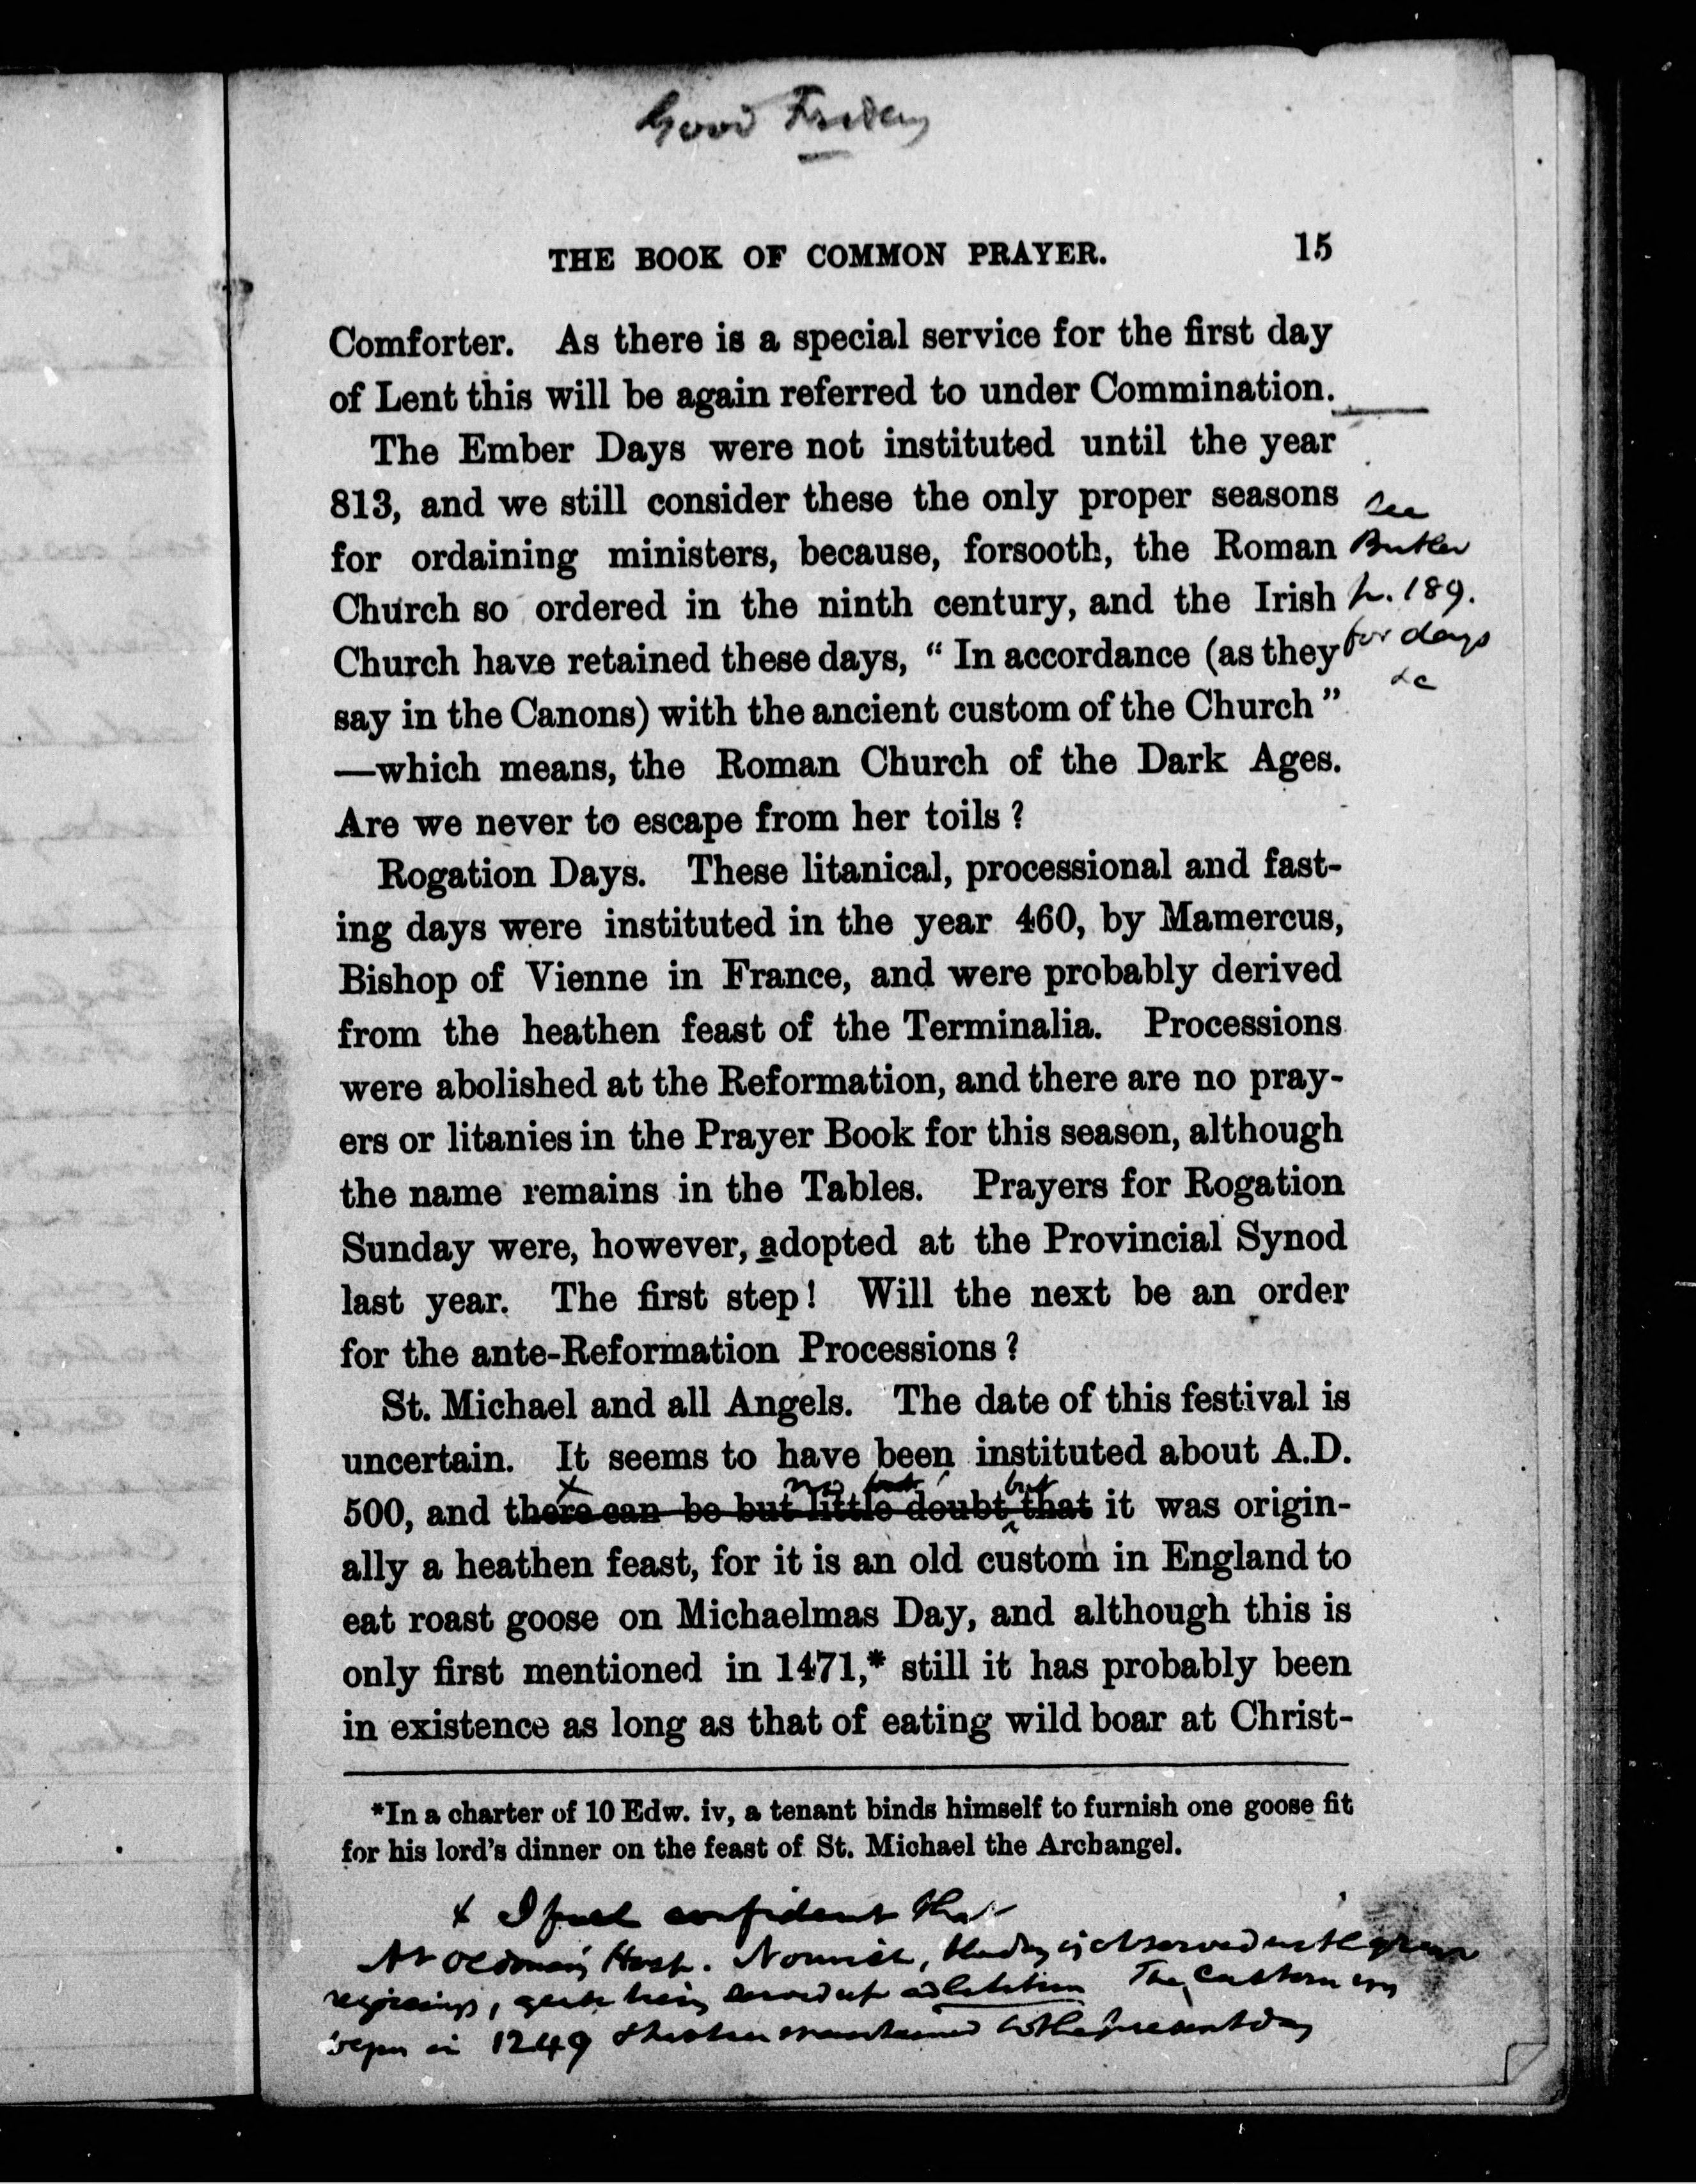 Good Friday
THE BOOK OF COMMON PRAYER. 15
Comforter. As there is a special service for the first day
of Lent this will be again referred to under Commination.
The Ember Days were not instituted until the year
813, and we still consider these the only proper seasons
for ordaining ministers, because, forsooth, the Roman
Church so ordered in the ninth century, and the Irish
Church have retained these days, “ In accordance (as they
say in the Canons) with the ancient custom of the Church ”
—which means, the Roman Church of the Dark Ages.
Are we never to escape from her toils ?
see
Butler
p. 189.
for days
&c
Rogation Days. These litanical, processional and fast-
ing days were instituted in the year 460, by Mamercus,
Bishop of Vienne in France, and were probably derived
from the heathen feast of the Terminalia. Processions
were abolished at the Reformation, and there are no pray-
ers or litanies in the Prayer Book for this season, although
the name remains in the Tables. Prayers for Rogation
Sunday were, however, adopted at the Provincial Synod
last year. The first step! Will the next be an order
for the ante-Reformation Processions ?
St. Michael and all Angels. The date of this festival is
uncertain. It seems to have been instituted about A.D.
x no but
500, and there can be but little doubt that it was origin-
ally a heathen feast, for it is an old custom in England to
eat roast goose on Michaelmas Day, and although this is
only first mentioned in 1471,* still it has probably been
in existence as long as that of eating wild boar at Christ-
*In a charter of 10 Edw. iv, a tenant binds himself to furnish one goose fit
for his lord's dinner on the feast of St. Michael the Archangel.
x I feel confident that
At Hosp. Norwich, the day is observed with great
rejoicings, geese being served up The Custom
began in 1249 & has been maintained to the present day